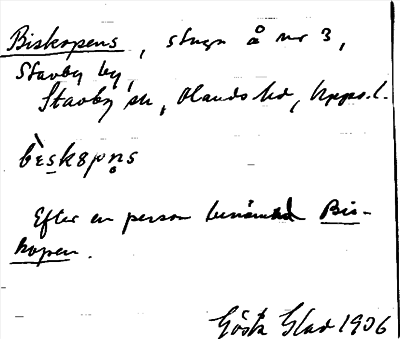 Biskopens, stuga å nr 3,
Stavby by,
Stavby sn, Olands hd, Upps. l.
bèskøpn̥s
Efter en person benämnd Bis-
kopen.
Gösta Glad 1906